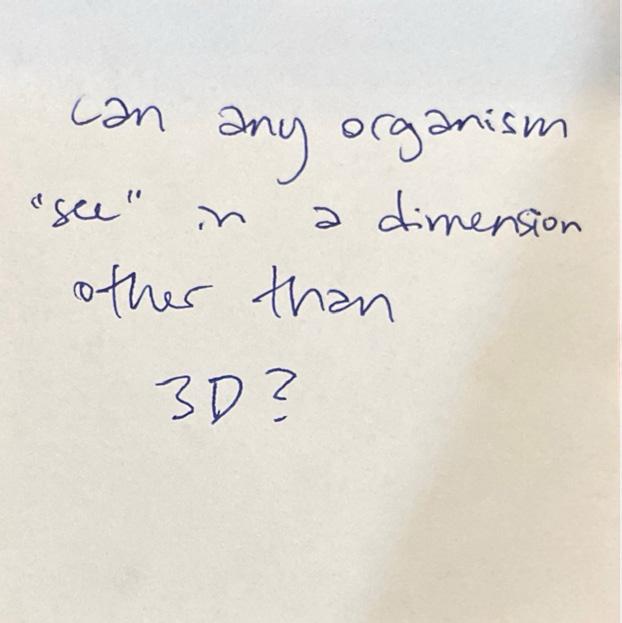 can any organism
"see" in a dimension
other than
3D?